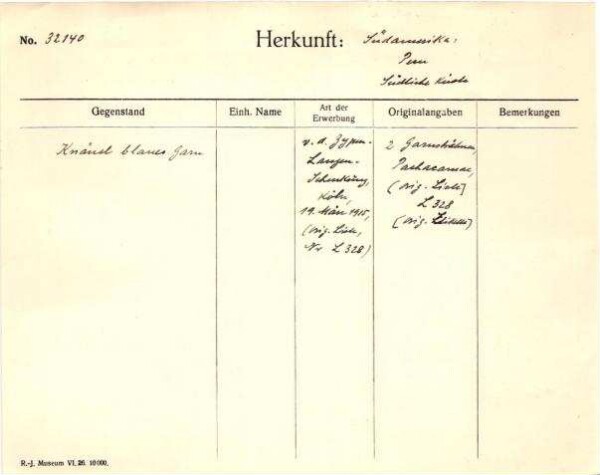 No. 32140
Herkunft: Südamerika:
Peru
Südliche Küste
Gegenstand
Einh. Name
Art der
Erwerbung
Originalangaben
Bemerkungen
Knäuel blaues Garn
v. d. Zypen-
Langen-
Schenkung,
Köln,
19. März 1915,
(orig. Liste,
Nr L 328)
2
Pachacamac,
(orig. Liste)
L 328
(orig.
R.-J. Museum VI. 26. 10000.